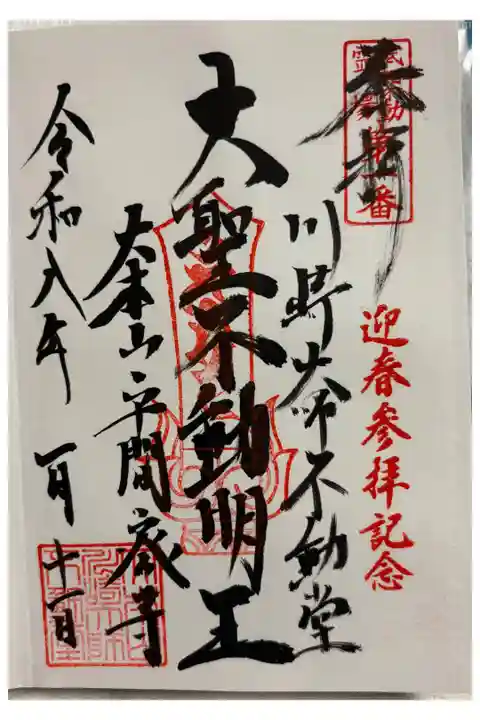 奉拝
第一番
迎春參拝記念
川崎大師不動堂
大聖不動明王
大本山平間寺
令和八年一月十一日